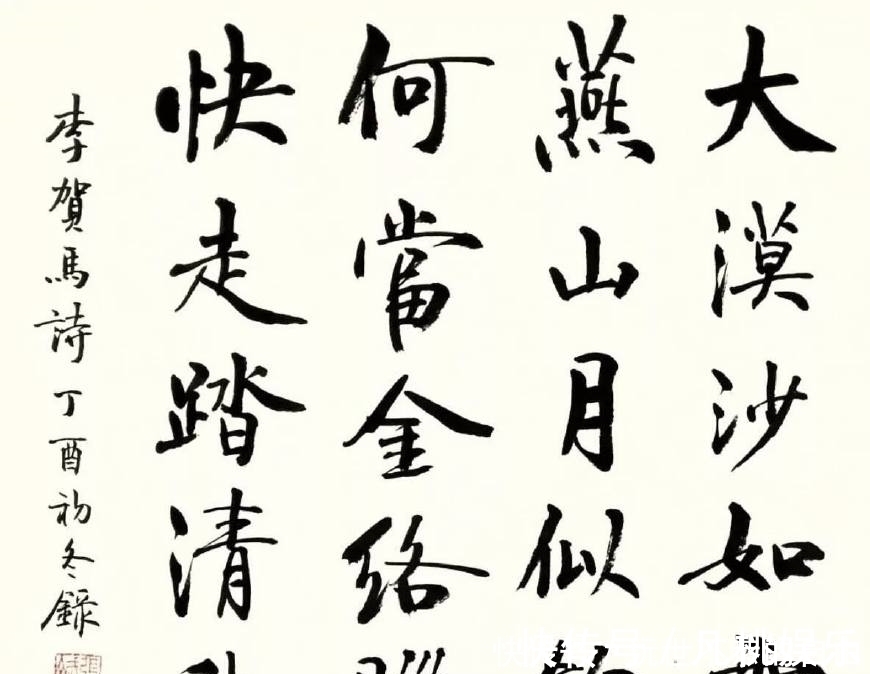 大漠沙如
燕山月似
何當金络
快走踏清
李賀馬詩丁酉初冬錄